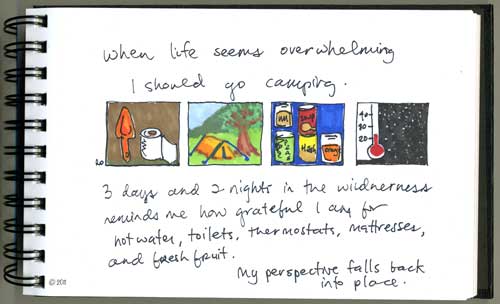 when life seems overwhelming
I should go camping.
soup
Hash
orange
40
30
20
3 days and 2 nights in the wilderness
reminds me how grateful I am for
hot water, toilets, thermostats, mattresses,
and fresh fruit.
My perspective falls back
into place.
© 2011